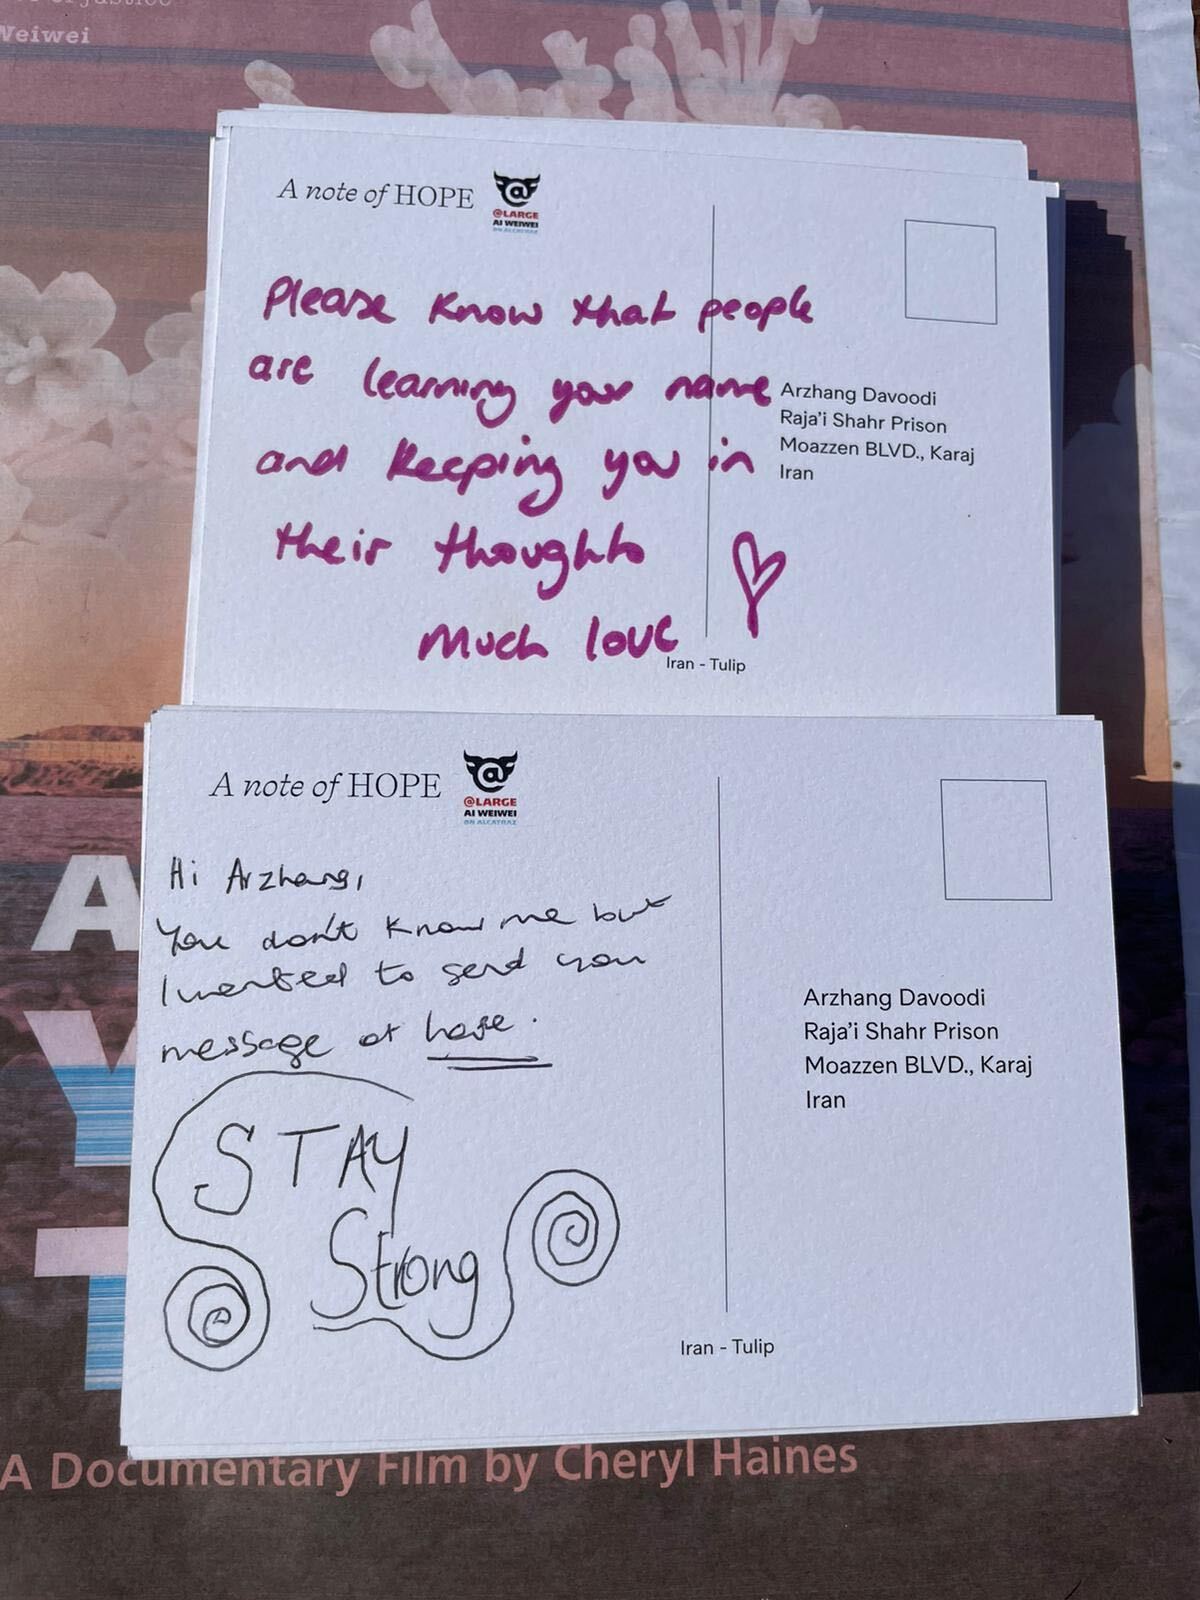 Weiwei
A note of HOPE
@LARGE
AI WEIWEI
ON ALCATRAZ
Please know that people
are learning your name
and keeping you in
their thoughts
Much love
Arzhang Davoodi
Raja'i Shahr Prison
Moazzen BLVD., Karaj
Iran
Iran - Tulip
A note of HOPE
@LARGE
AI WEIWEI
ON ALCATRAZ
Hi Arzhang,
You don't know me but
I wanted to send you
message of hope.
STAY
Strong
Arzhang Davoodi
Raja'i Shahr Prison
Moazzen BLVD., Karaj
Iran
Iran - Tulip
A
Y
T
A Documentary Film by Cheryl Haines